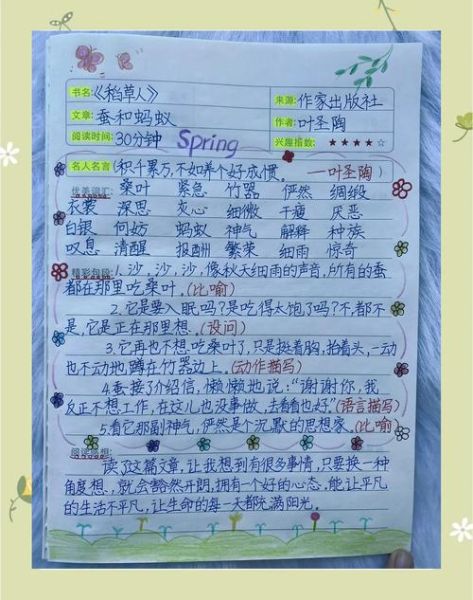 书名:《稻草人》 来源: 作家出版社
文章: 蚕和蚂蚁 作者: 叶圣陶
阅读时间: 30分钟 Spring 兴趣指数: ★★★★☆
名人名言 (积千累万,不如养个好习惯。 —叶圣陶)
优美词汇: 桑叶 紧急 竹器 俨然 绸缎
衣裳 深思 灰心 细微 干瘪 厌恶
白银 何妨 蚂蚁 神气 解释 种族
叹息 清醒 报酬 繁荣 细雨 惊奇
精彩句段: 1.沙,沙,沙,像秋天细雨的声音,所有的蚕
都在那里吃桑叶。(比喻)
2.它是要入眠吗?是吃得太饱了吗?不,都不
是,它是正在那里想。(设问)
3.它再也不想吃桑叶了,只是挺着胸,抬着头,一动
也不动地蹲在竹器边上。(动作描写)
4.蚕接了介绍信,懒懒地说:“谢谢你,我
反正不想工作,在这儿也没事做,去看看也好”(语言描写)
5.看它那副神气,俨然是个沉默的思想家。(比喻)
阅读感想:
读了这篇文章,让我想到有很多事情,只要换一种
角度想,就会豁然开朗,拥有一个好的心态,能让平凡
的生活不平凡,让生命的每一天都充满阳光。